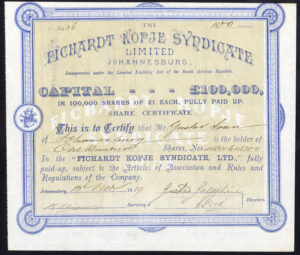 THE
100
FICHARDT KOPJE SYNDICATE
LIMITED
JOHANNESBURG.
Incorporated under the Limited Liability Act of the South African Republic.
CAPITAL - - - £100,000,
IN 100,000 SHARES OF £1 EACH, FULLY PAID UP.
SHARE CERTIFICATE.
This is to Certify that Mr
of Johannesburg is the holder of
One Hundred Shares, Nos
In the "FICHARDT KOPJE SYNDICATE, LTD.," fully
paid-up, subject to the Articles of Association and Rules and
Regulations of the Company.
Johannesburg, 1889